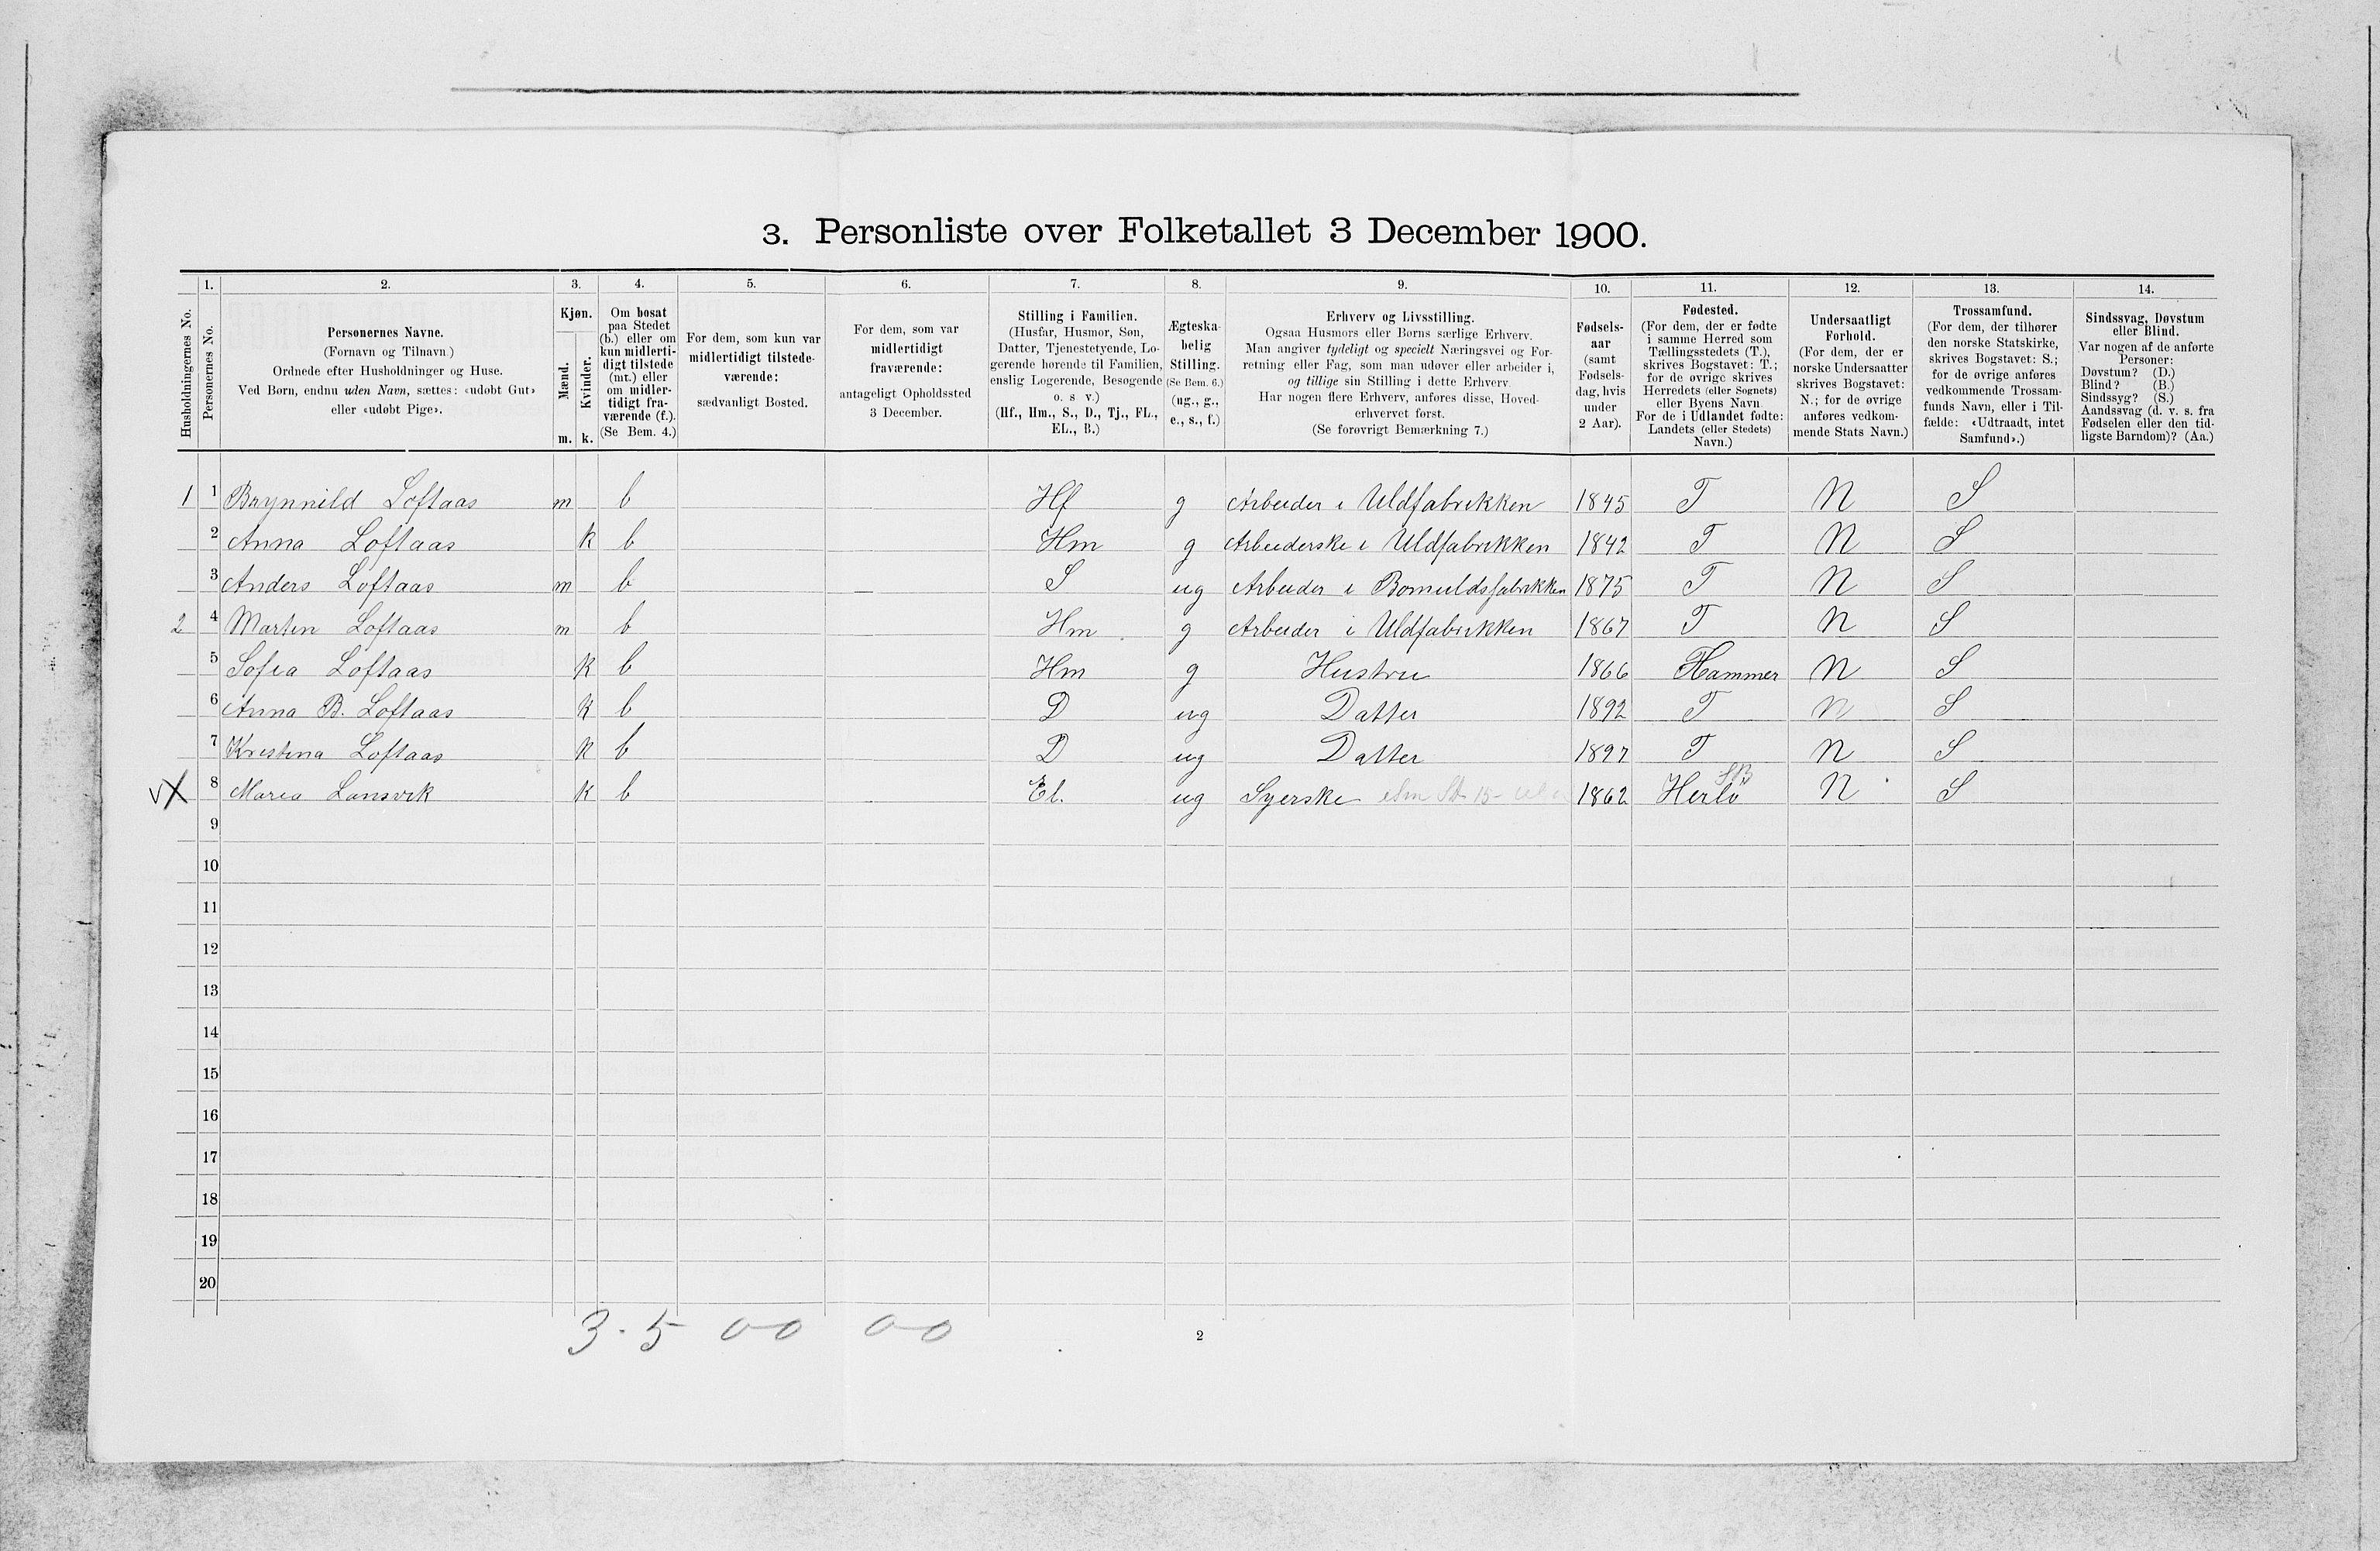 3. Personliste over Folketallet 3 December 1900.
Husholdningernes No.
1. Personernes No.
2. Personernes Navne.
(Fornavn og Tilnavn.)
Ordnede efter Husholdninger og Huse.
Ved Børn, endnu uden Navn, sættes: «udøbt Gut»
eller «udøbt Pige».
3. Kjøn.
Mænd. m.
Kvinder. k.
4. Om bosat
paa Stedet
(b.) eller om
kun midlerti-
digt tilstede
(mt.) eller
om midler-
tidigt fra-
værende (f.).
(Se Bem. 4.)
5. For dem, som kun var
midlertidigt tilstede-
værende:
sædvanligt Bosted.
6. For dem, som var
midlertidigt
fraværende:
antageligt Opholdssted
3 December.
7. Stilling i Familien.
(Husfar, Husmor, Søn,
Datter, Tjenestetyende, Lo-
gerende hørende til Familien,
enslig Logerende, Besøgende
o. s v.)
(Hf., Hm., S., D., Tj., FL.,
EL., B.)
8. Ægteska-
belig
Stilling.
(Se Bem. 6.)
(ug., g.,
e., s., f.)
9. Erhverv og Livsstilling.
Ogsaa Husmors eller Børns særlige Erhverv.
Man angiver tydeligt og specielt Næringsvei og For-
retning eller Fag, som man udøver eller arbeider i,
og tillige sin Stilling i dette Erhverv.
Har nogen flere Erhverv, anføres disse, Hoved-
erhvervet først.
(Se forøvrigt Bemærkning 7.)
10. Fødsels-
aar
(samt
Fødsels-
dag, hvis
under
2 Aar).
11. Fødested.
(For dem, der er fødte
i samme Herred som
Tællingsstedets (T.),
skrives Bogstavet: T.;
for de øvrige skrives
Herredets (eller Sognets)
eller Byens Navn
For de i Udlandet fødte:
Landets (eller Stedets)
Navn.)
12. Undersaatligt
Forhold.
(For dem, der er
norske Undersaatter
skrives Bogstavet:
N.; for de øvrige
anføres vedkom-
mende Stats Navn.)
13. Trossamfund.
(For dem, der tilhører
den norske Statskirke,
skrives Bogstavet: S.;
for de øvrige anføres
vedkommende Trossam-
funds Navn, eller i Til-
fælde: «Udtraadt, intet
Samfund».)
14. Sindssvag, Døvstum
eller Blind.
Var nogen af de anførte
Personer:
Døvstum? (D.)
Blind? (B.)
Sindssyg? (S.)
Aandssvag (d. v. s. fra
Fødselen eller den tid-
ligste Barndom)? (Aa.)
1 1 Brynnild Loftaas m b Hf g Arbeider i Uldfabrikken 1845 T N S
2 Anna Loftaas k b Hm g Arbeiderske i Uldfabrikken 1842 T N S
3 Anders Loftaas m b — S ug Arbeider i Bomuldsfabrikken 1875 T N S
2 4 Martin Loftaas m b Hm g Arbeider i Uldfabrikken 1867 T N S
5 Sofia Loftaas k b Hm g Hustru 1866 Hammer N S
6 Anna B. Loftaas k b D ug Datter 1892 T N S
7 Kristina Loftaas k b D ug Datter 1897 T N S
v X 8 Maria Lansvik k b El. ug Syerske 1862 Herlö SB N S
9
10
11
12
13
14
15
16
17
18
19
20
3 - 5 0-0 0-0
2